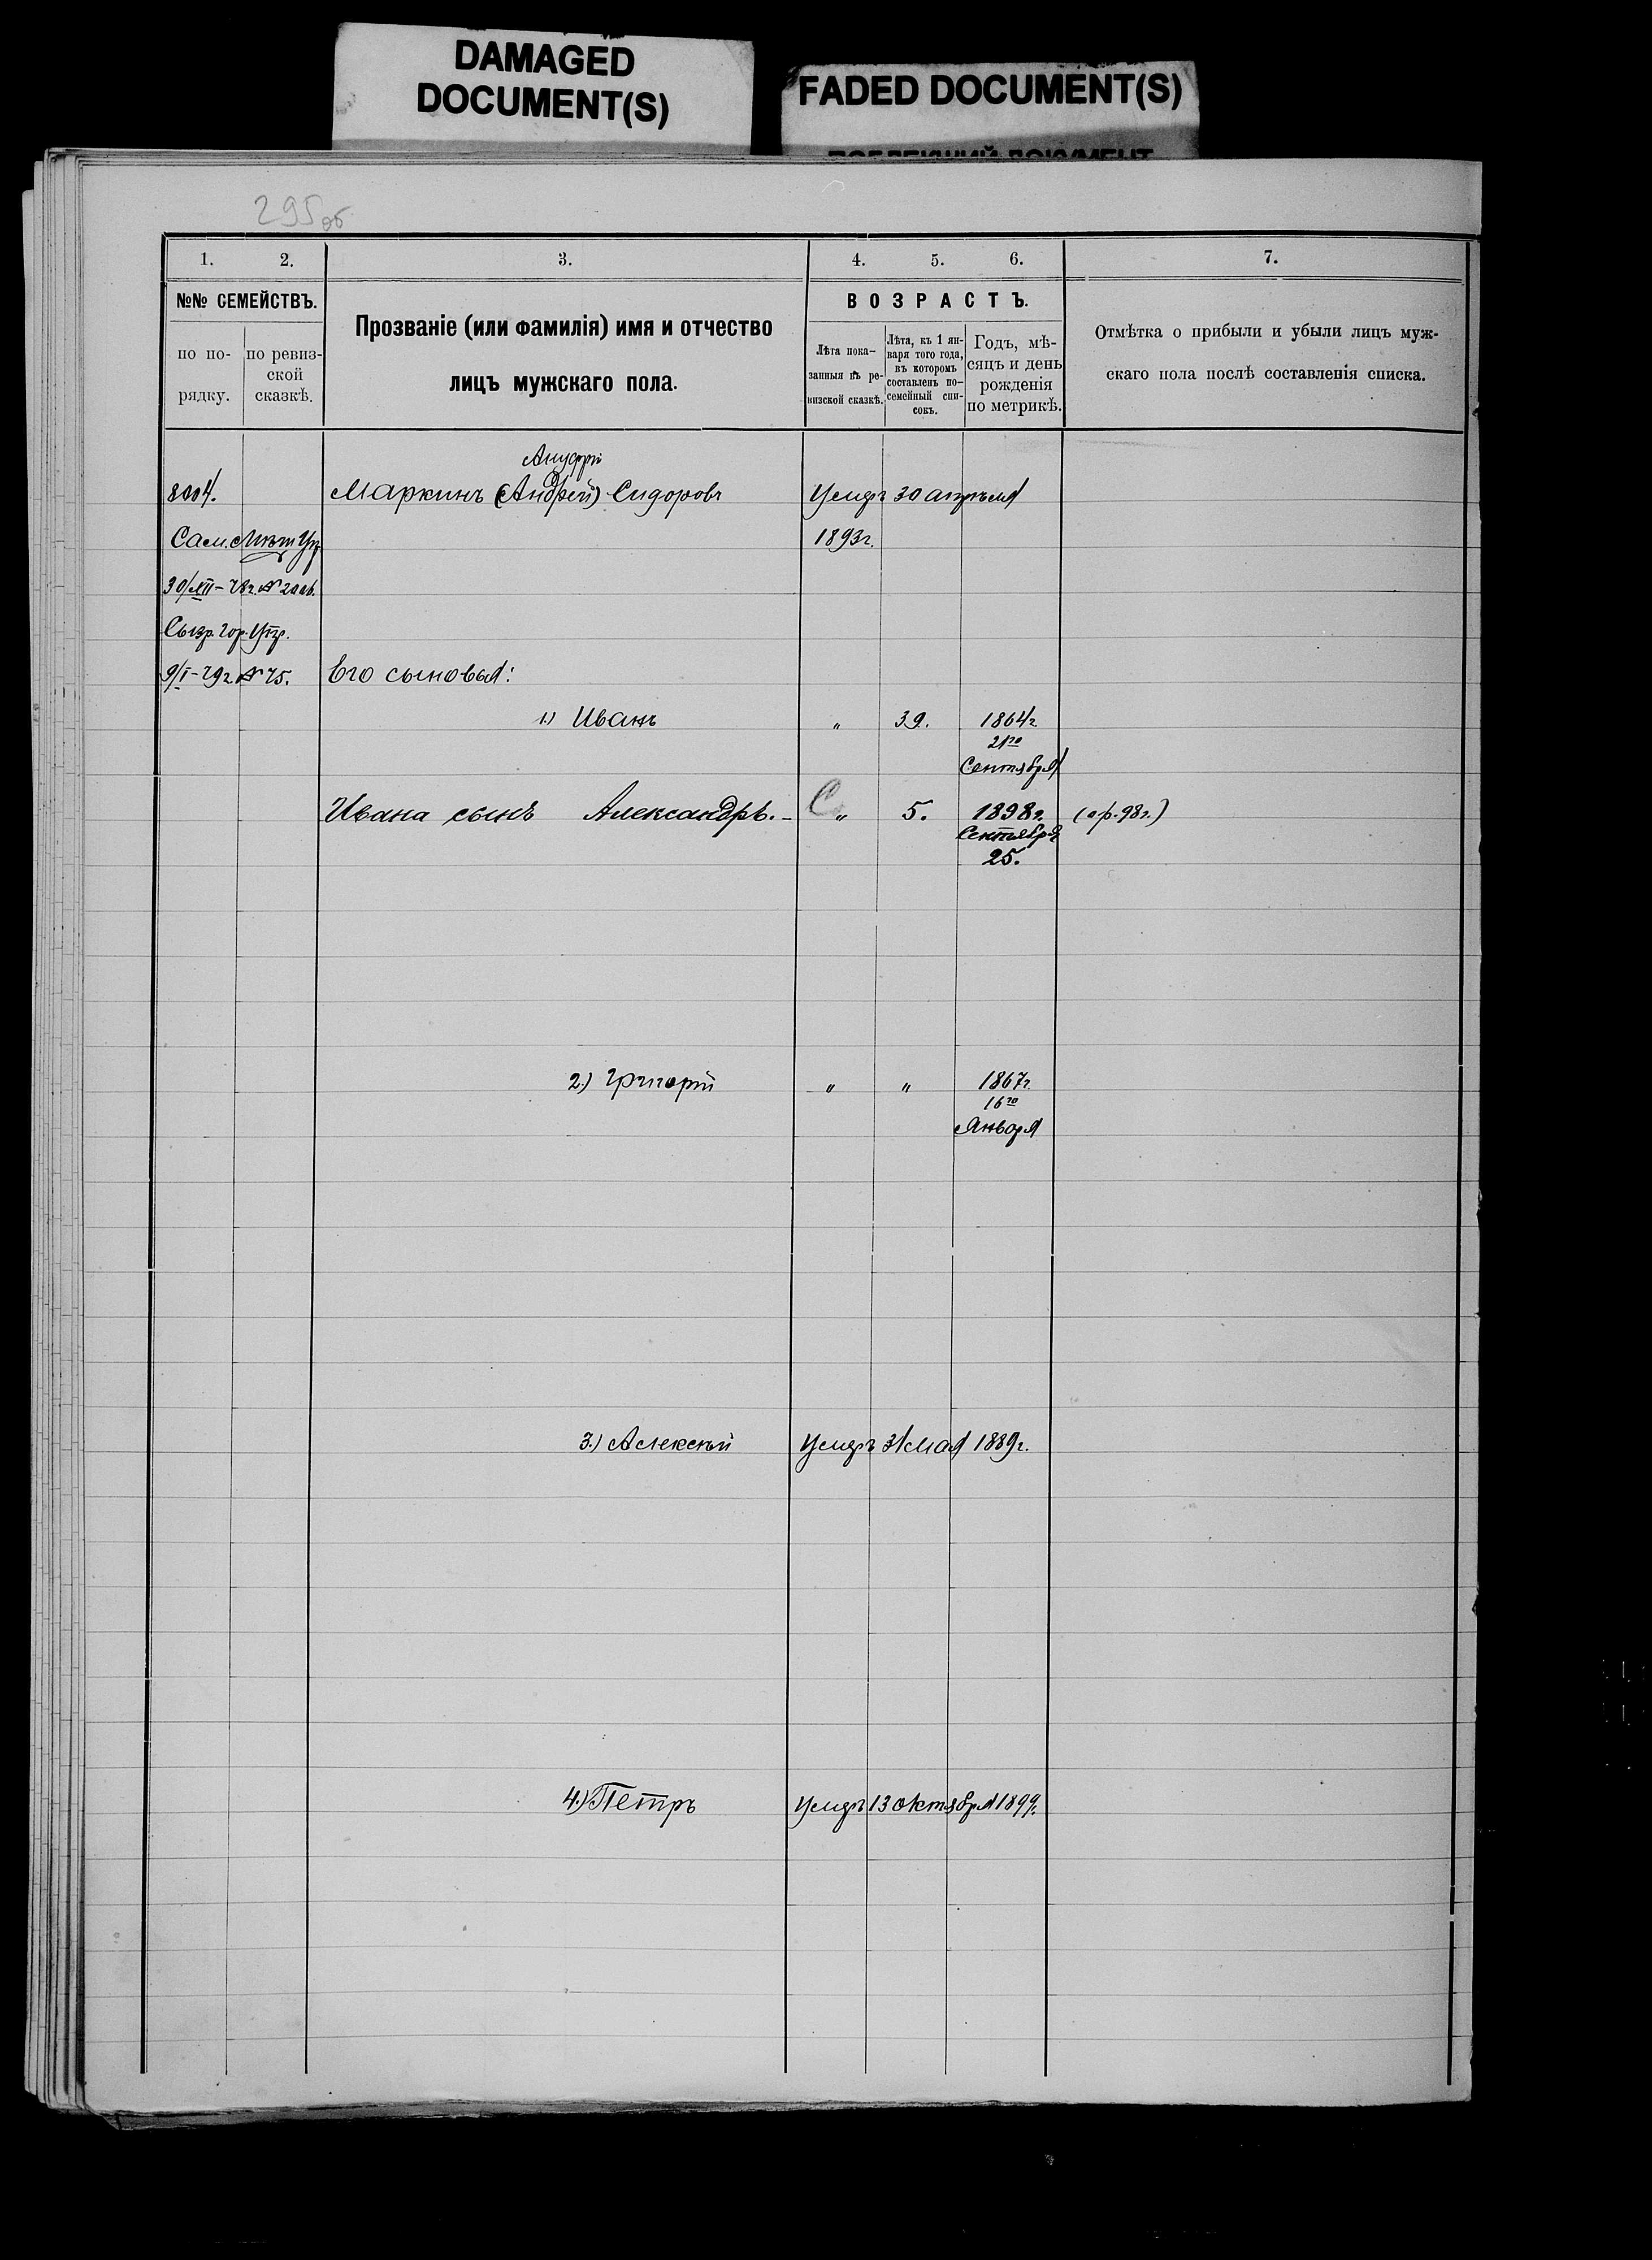 DAMAGED
DOCUMENT(S)
FADED DOCUMENT(S)
295об
1. 2. 3. 4. 5. 6. 7.
№№ СЕМЕЙСТВЪ.
по по-
рядку.
по ревиз-
ской
сказкѣ.
Прозваніе (или фамилія) имя и отчество
лицъ мужскаго пола.
ВОЗРАСТЪ.
Лѣта пока-
занныя въ ре-
визской сказкѣ.
Лѣта, къ 1 ян-
варя того года,
въ которомъ
составленъ по-
семейный спи-
сокъ.
Годъ, мѣ-
сяцъ и день
рожденія
по метрикѣ.
Отмѣтка о прибыли и убыли лицъ муж-
скаго пола послѣ составленія списка.
Ануфрій
8004. Маркинъ (Андрей) Сидоровъ Умеръ 30 апрѣля
Сам. Мѣщ Уп 1893г.
30/XII-78г. №
Сызр. Гор. Упр.
9/I-79г. № 75. Его сыновья:
1) Иванъ " 39. 1864г
21го
Сентября
Ивана сынъ Александръ. - С " 5. 1898г. (ар. 98г.)
Сентября
25.
2.) Григорій " " 1867г.
16го
Января
3.) Алексѣй Умеръ 31 мая 1889г.
4.) Петръ Умеръ 13 октября